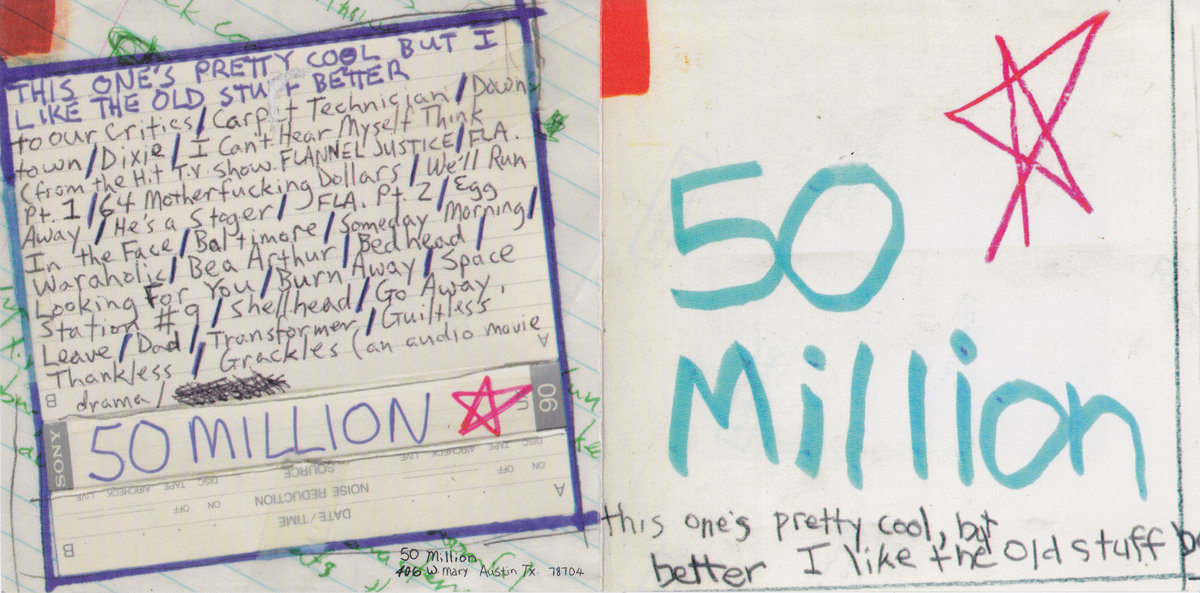 THIS ONE'S PRETTY COOL BUT I
LIKE THE OLD STUFF BETTER
to our Critics / Carpet Technician / Down
town / Dixie / I Can't Hear Myself Think
(from the Hit T.V. show FLANNEL JUSTICE / FLA.
Pt. 1 / 64 Motherfucking Dollars / We'll Run
Away / He's a Stager / FLA. Pt. 2 / Egg
In the Face / Baltimore / Someday Morning /
Waraholic / Bea Arthur / Bedhead /
Looking For You / Burn Away / Space
Station #9 / Shellhead / Go Away,
Leave / Dad / Transformer / Guiltless
Thankless / Grackles (an audio movie
drama /
B
A
SONY
50 MILLION
90
DISC TAPE AIRCHECK LIVE
DISC TAPE AIRCHECK LIVE
SOURCE
ON OFF
ON OFF
NOISE REDUCTION
DATE / TIME
A
B
50 Million
406 W. Mary Austin Tx. 78704
50
Million
this one's pretty cool, but
better I like the old stuff be